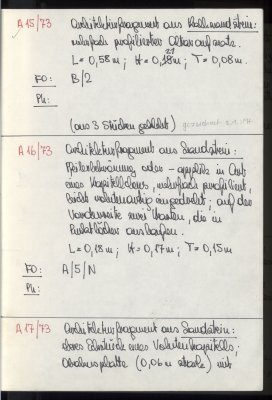 A 15/73 Architekturfragment aus Kalksandstein:
mehrfach profilierter Altaraufsatz.
21
L = 0,58 m ; H = 0,18 m ; T = 0,08 m.
FO: B/2
Ph:
(aus 3 Stücken geklebt) gezeichnet
A 16/73 Architekturfragment aus Sandstein:
Pfeilerbekrönung oder - in Art
eines Kapitellchens, mehrfach profiliert,
; auf der
Vorderseite zwei , die in
auslaufen.
L = 0,18 m ; H = 0,17 m ; T = 0,15 m
FO: A/5/N
Ph:
A 17/73 Architekturfragment aus Sandstein:
oberes Eckstück eines Volutenkapitells;
Abakusplatte (0,06 m stark) mit